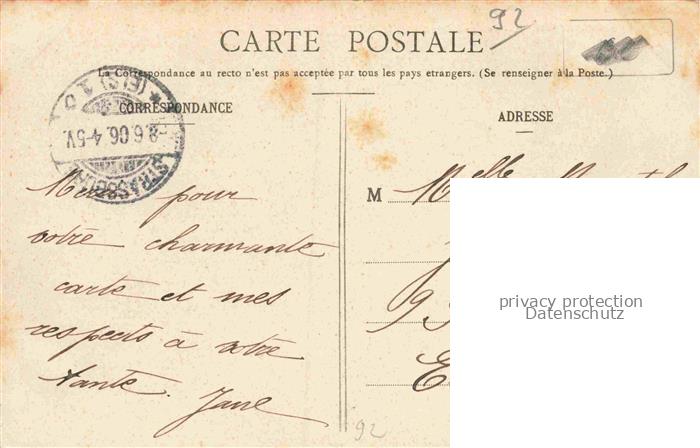 92
CARTE POSTALE
La Correspondance au recto n'est pas acceptée par tous les pays etrangers. (Se renseigner à la Poste.)
CORRESPONDANCE
ADRESSE
STRASSBURG
(ELS) 1 c
-8.6.06. 4-5V.
Merci pour
votre charmante
carte et mes
respects à votre
tante. Jane
M Melle
privacy protection
Datenschutz
E
92